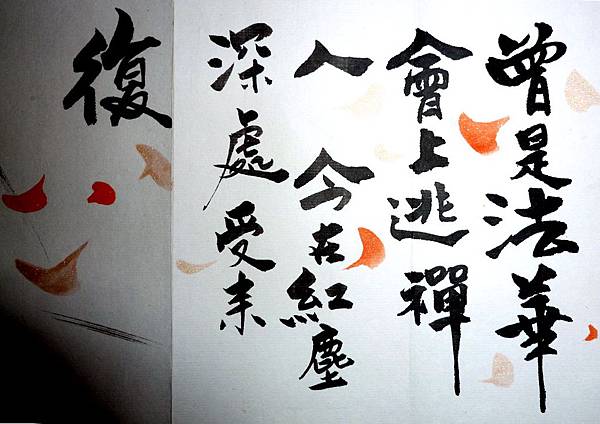 曾是法華
會上逃禪
人 今在紅塵
深處受未
復